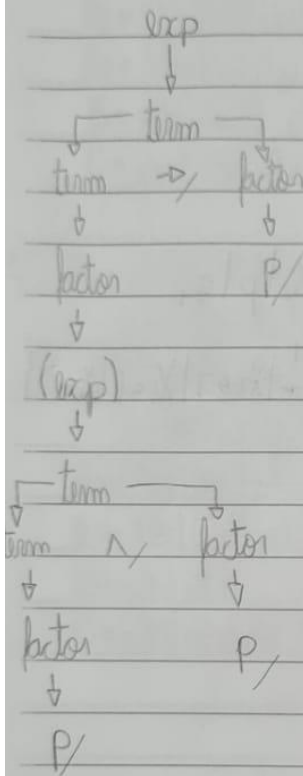 exp
term
term → factor
factor P
(exp)
term
term ∧ factor
factor P
P